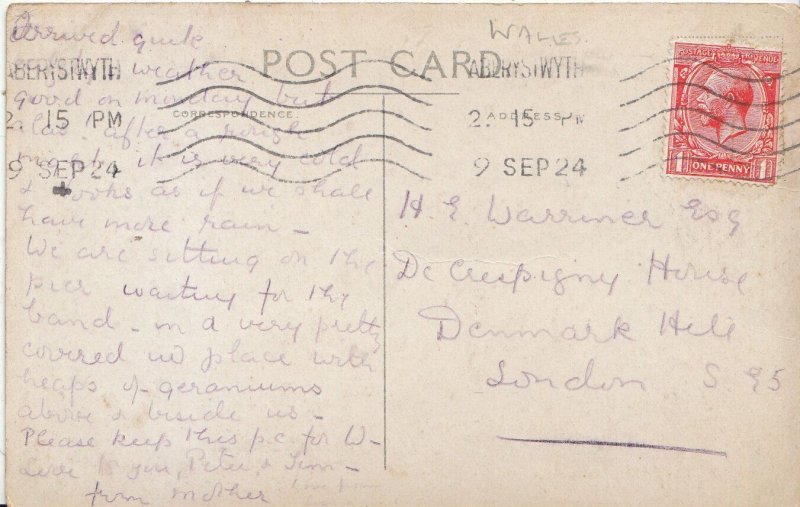 WALES.
POST CARD
CORRESPONDENCE
ADDRESS
ABERYSTWYTH
2. 15 PM
9 SEP 24
ABERYSTWYTH
2. 15 PM
9 SEP 24
POSTAGE REVENUE
ONE PENNY
Arrived quite
weather
good on monday but
alas after a rough
night it is very cold
& looks as if we shall
have more rain –
We are sitting on the
pier waiting for the
band – in a very pretty
covered in place with
heaps of geraniums
above & beside us –
Please keep this p.c for W–
Love to you, Peter &
from mother
H. E. Warriner Esq
De Crespigny House
Denmark Hill
London S E5